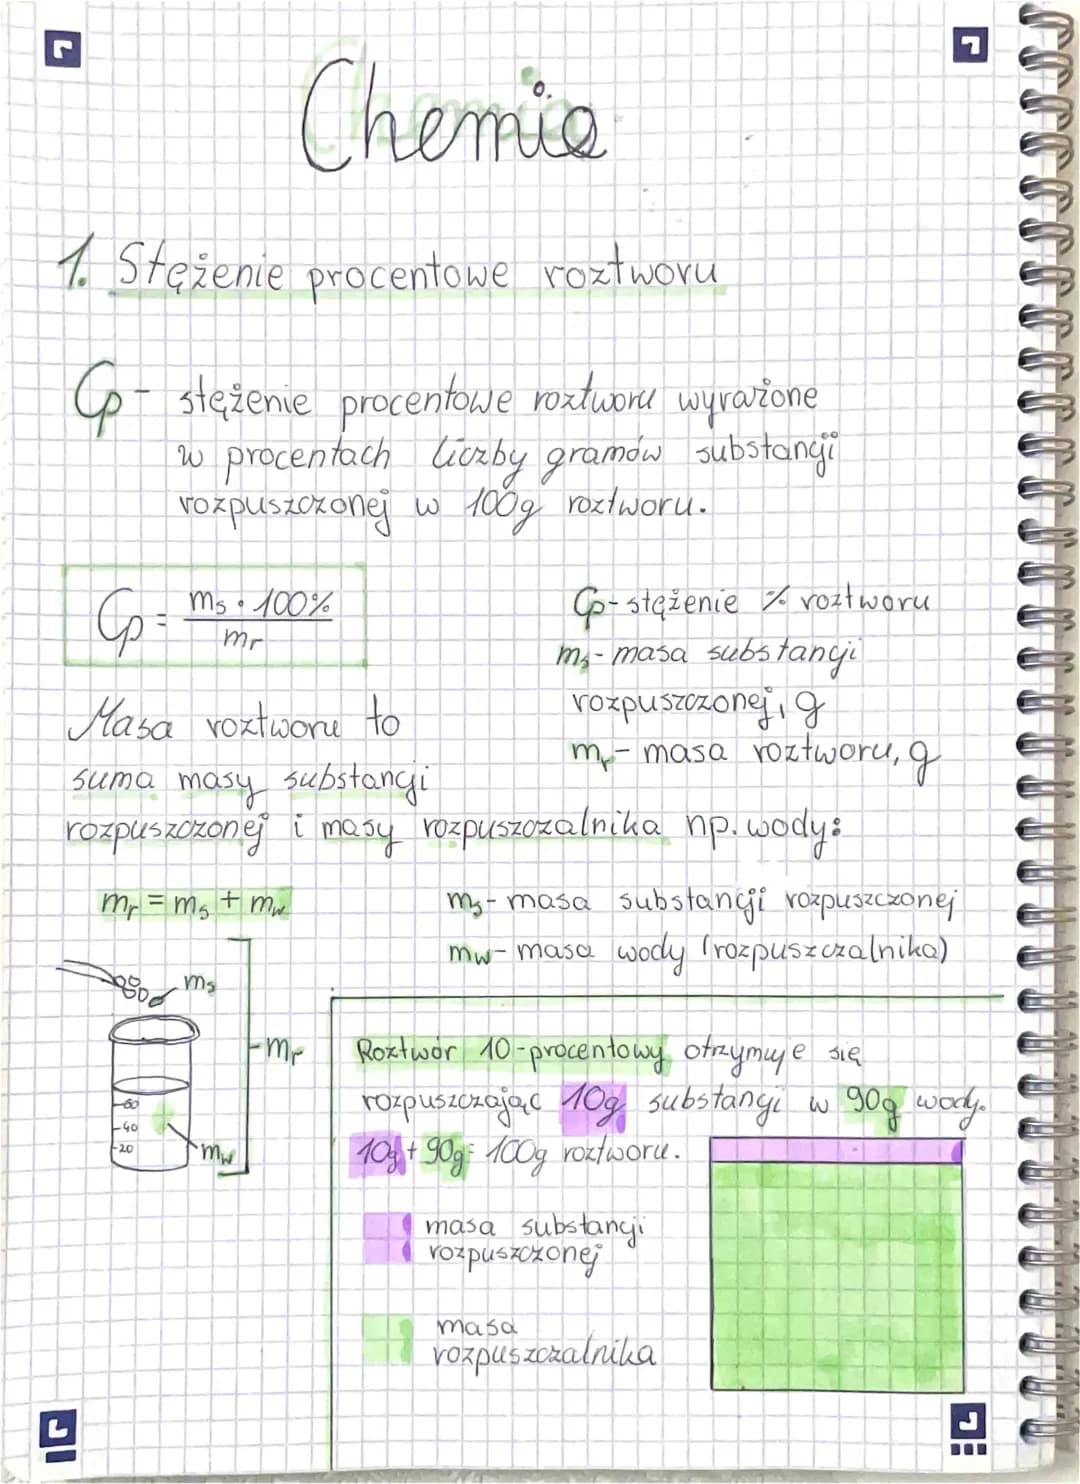 Chemia
1. Stężenie procentowe roztworu
Cp - stężenie procentowe roztworu wyrażone
w procentach liczby gramów substancji
rozpuszczonej w 100g roztworu.
Cp = ms · 100% / mr
Cp - stężenie % roztworu
ms - masa substancji
rozpuszczonej, g
mr - masa roztworu, g
Masa roztworu to
suma masy substancji
rozpuszczonej i masy rozpuszczalnika np. wody:
mr = ms + mw
ms - masa substancji rozpuszczonej
mw - masa wody (rozpuszczalnika)
ms
mr
60
40
20
mw
Roztwór 10-procentowy otrzymuje się
rozpuszczając 10g substancji w 90g wody.
10g + 90g = 100g roztworu.
masa substancji
rozpuszczonej
masa
rozpuszczalnika